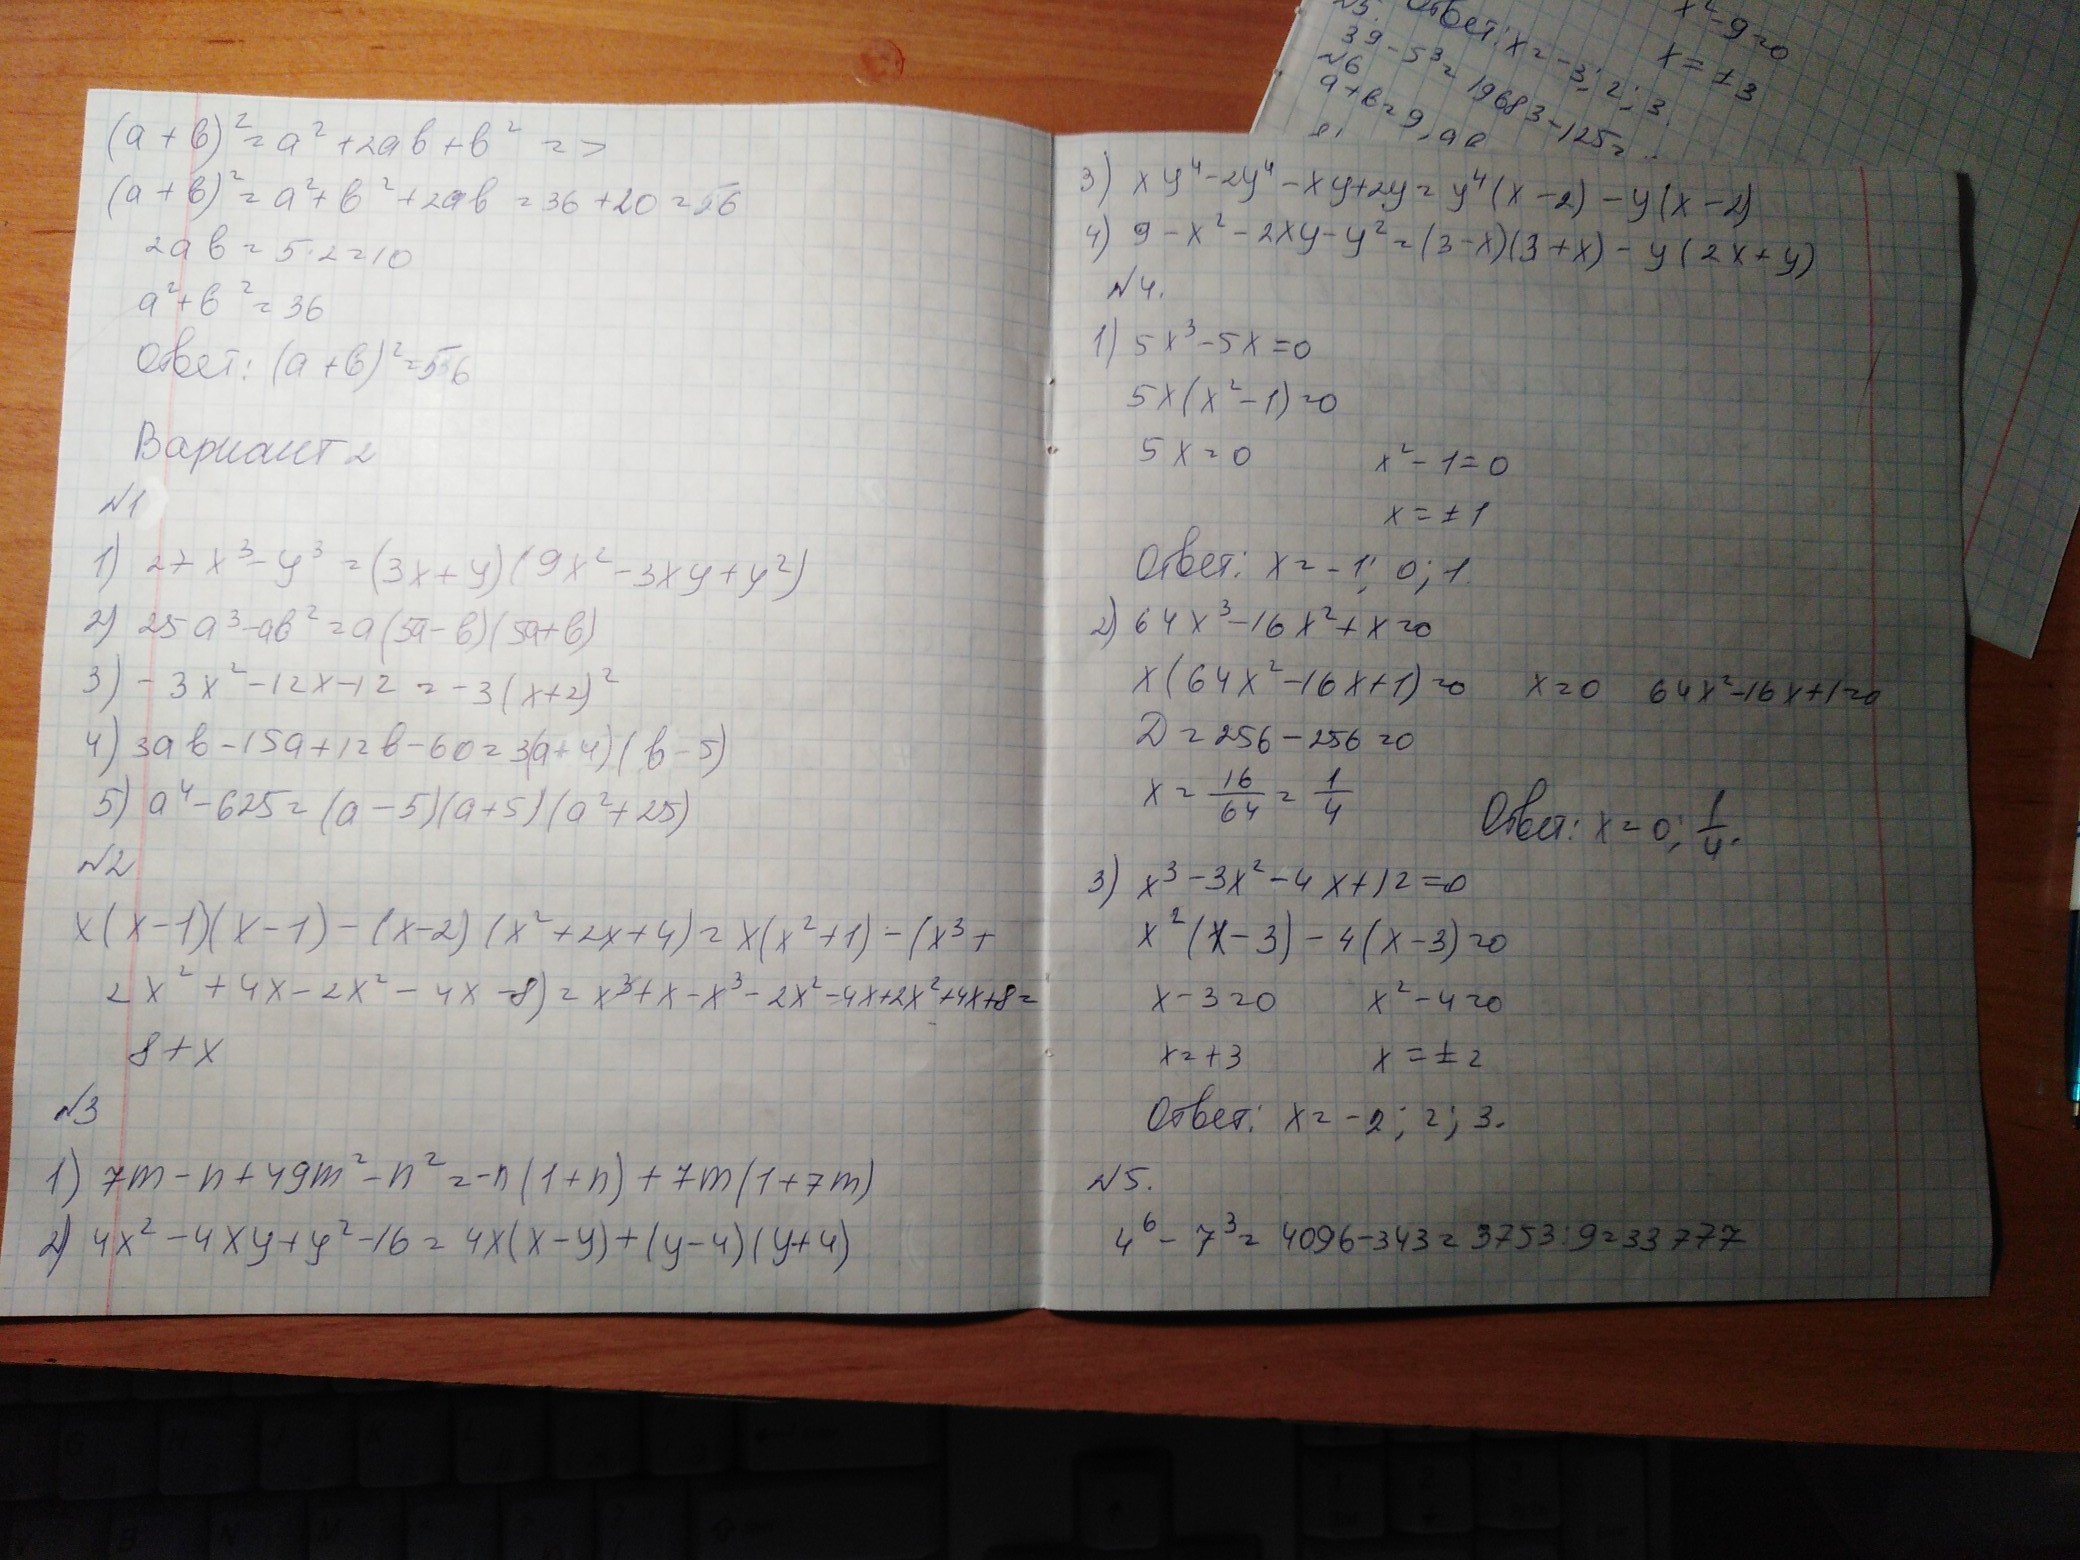 (a+b)² = a² + 2ab + b² =>
(a+b)² = a² + b² + 2ab = 36 + 20 = 56
2ab = 5·2 = 10
a² + b² = 36
Ответ: (a+b)² = 56
Вариант 2
№1
1) 27x³ - y³ = (3x+y)(9x² - 3xy + y²)
2) 25a³ - ab² = a(5a-b)(5a+b)
3) -3x² - 12x - 12 = -3(x+2)²
4) 3ab - 15a + 12b - 60 = 3(a+4)(b-5)
5) a⁴ - 625 = (a-5)(a+5)(a²+25)
№2
x(x-1)(x-1) - (x-2)(x²+2x+4) = x(x²+1) - (x³+
2x² + 4x - 2x² - 4x - 8) = x³ + x - x³ - 2x² - 4x + 2x² + 4x + 8 =
8 + x
№3
1) 7m - n + 49m² - n² = -n(1+n) + 7m(1+7m)
2) 4x² - 4xy + y² - 16 = 4x(x-y) + (y-4)(y+4)
3) xy⁴ - 2y⁴ - xy + 2y = y⁴(x-2) - y(x-2)
4) 9 - x² - 2xy - y² = (3-x)(3+x) - y(2x+y)
№4.
1) 5x³ - 5x = 0
5x(x²-1) = 0
5x = 0 x² - 1 = 0
x = ±1
Ответ: x = -1; 0; 1.
2) 64x³ - 16x² + x = 0
x(64x² - 16x + 1) = 0 x = 0 64x² - 16x + 1 = 0
D = 256 - 256 = 0
x = 16/64 = 1/4
Ответ: x = 0; 1/4.
3) x³ - 3x² - 4x + 12 = 0
x²(x-3) - 4(x-3) = 0
x - 3 = 0 x² - 4 = 0
x = +3 x = ±2
Ответ: x = -2; 2; 3.
№5.
4⁶ - 7³ = 4096 - 343 = 3753 : 9 = 33777
x² - 9 = 0
x = ±3
Ответ: x = -3; 2; 3.
№5.
39 - 5³ = 19683 - 125 =
№6
a + b = 9, ab